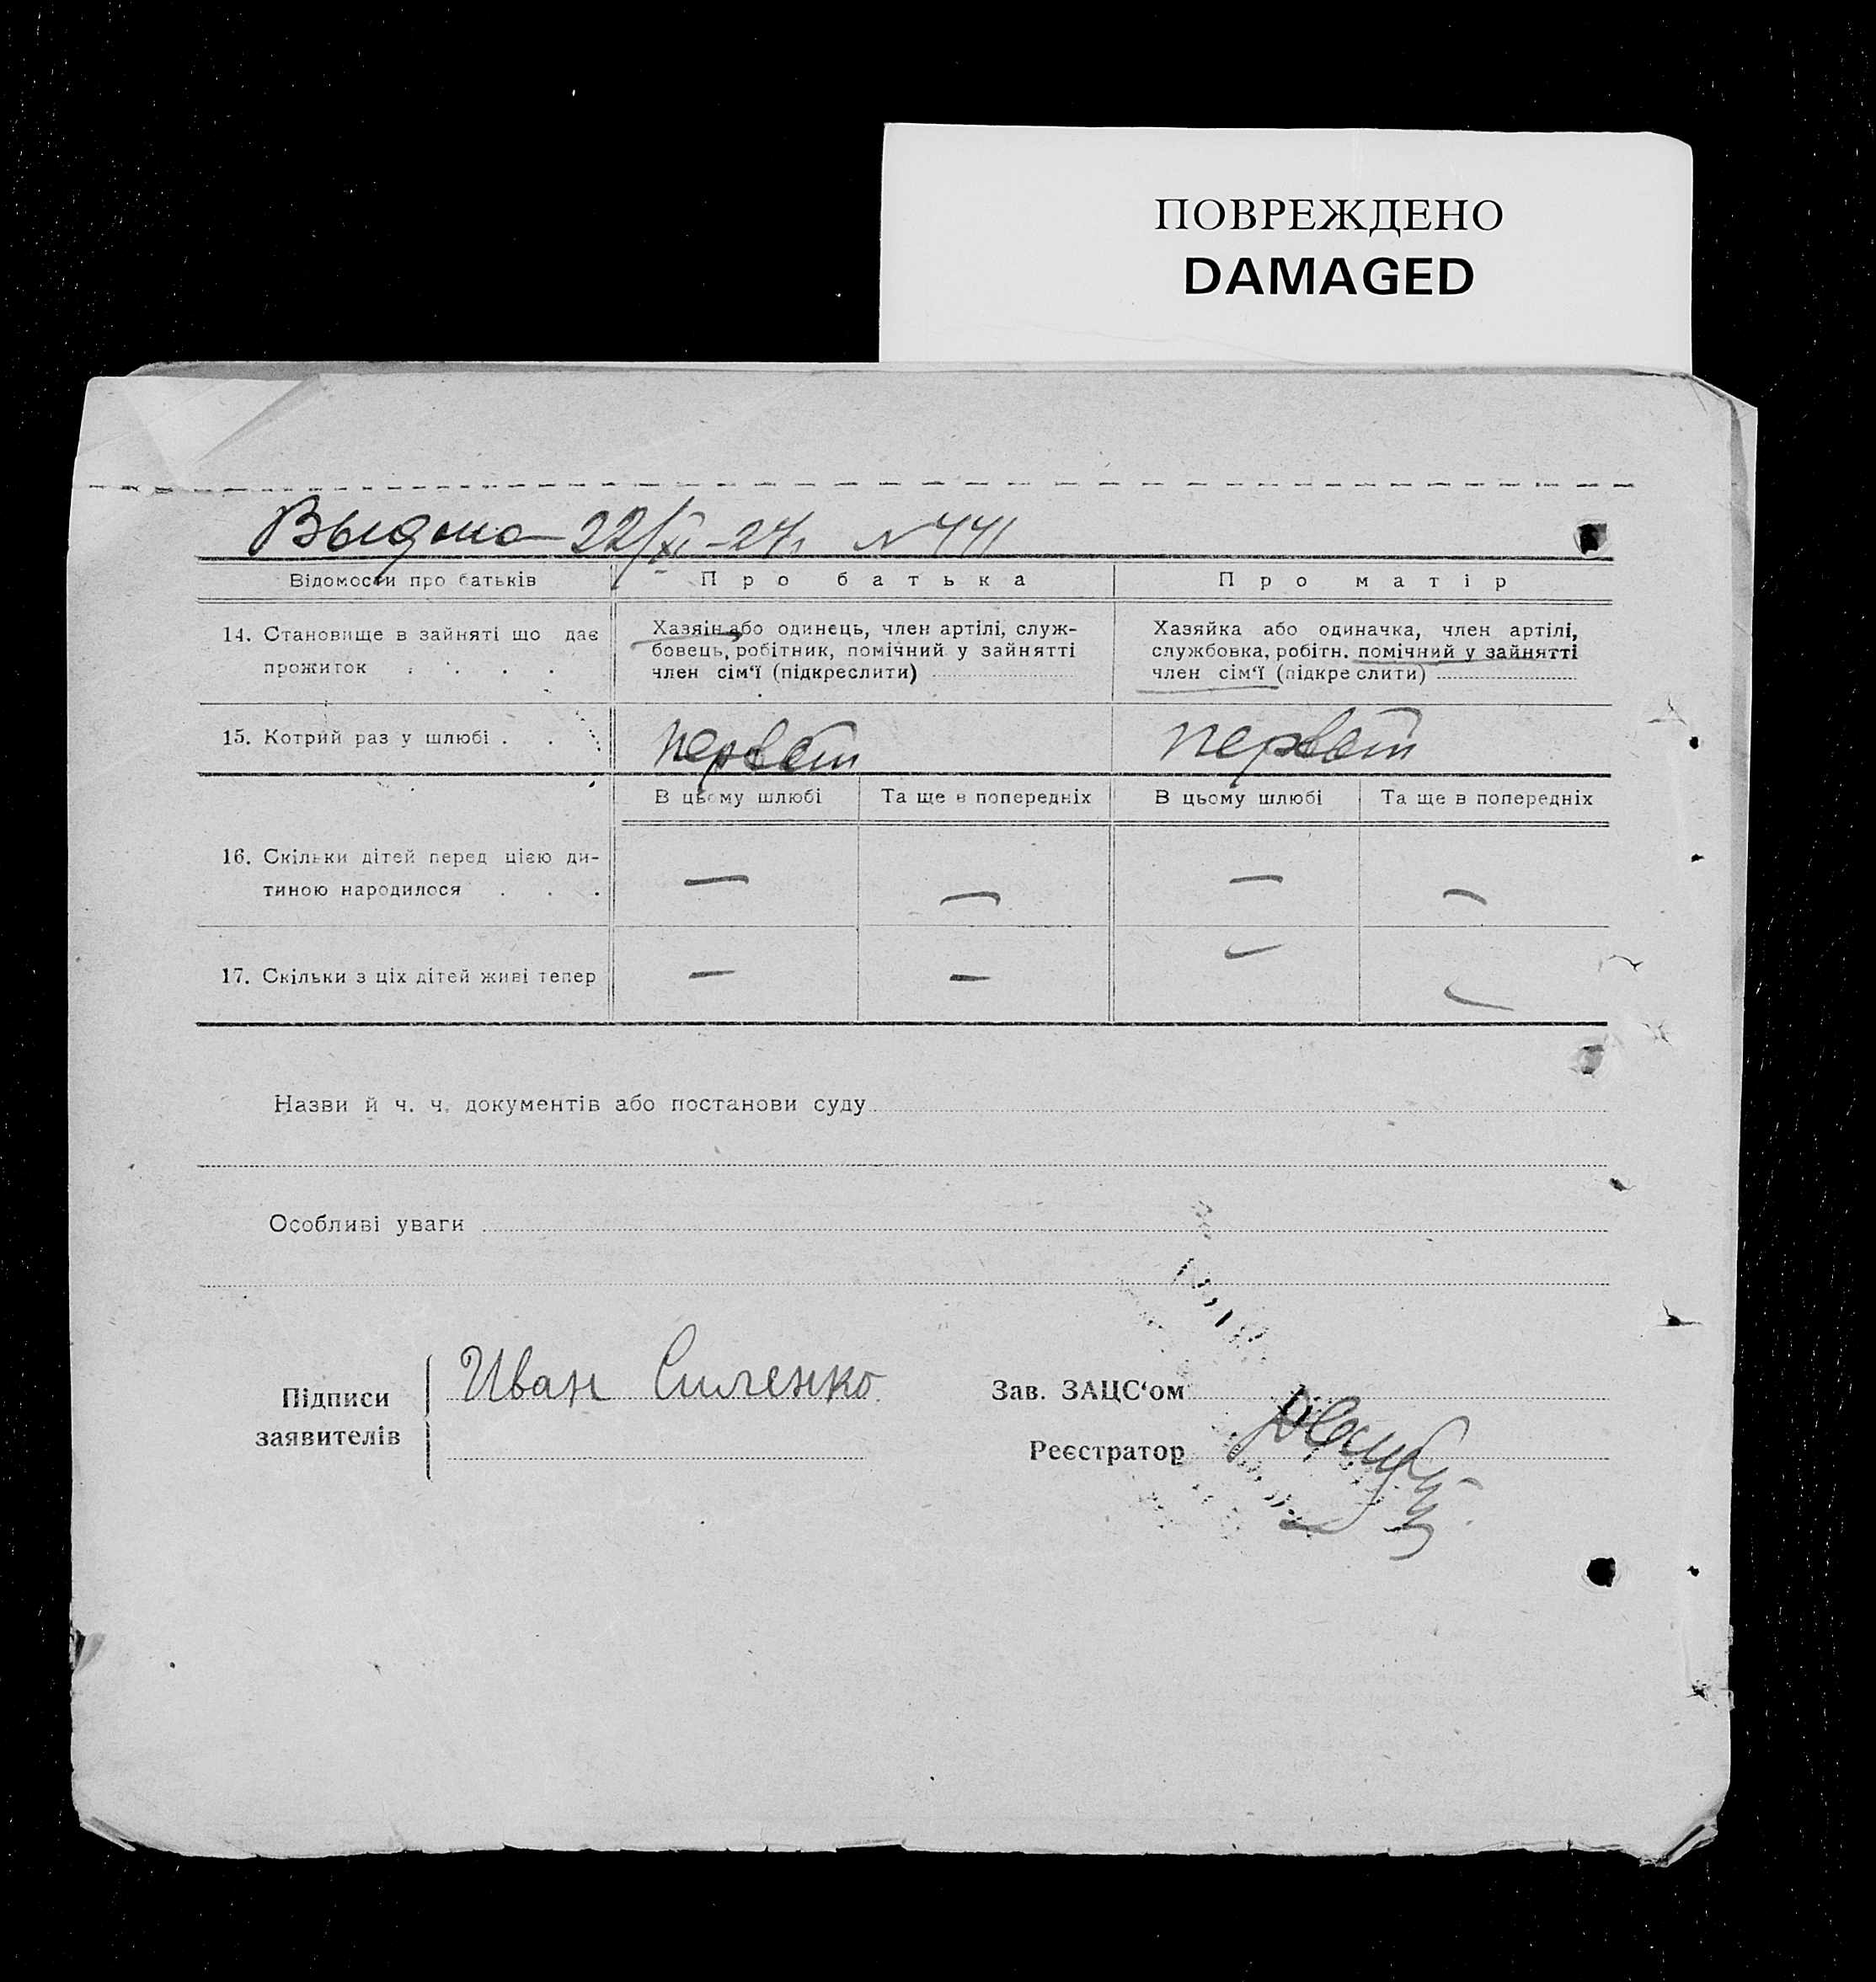 ПОВРЕЖДЕНО
DAMAGED
Выдано 22/XI-27г № 441
Відомости про батьків
Про батька
Про матір
14. Становище в зайняті що дає
прожиток . . . .
Хазяін або одинець, член артілі, служ-
бовець, робітник, помічний у зайнятті
член сім‘ї (підкреслити)
Хазяйка або одиначка, член артілі,
службовка, робітн. помічний у зайнятті
член сім‘ї (підкреслити)
15. Котрий раз у шлюбі . . .
первый
первый
В цьому шлюбі
Та ще в попередніх
В цьому шлюбі
Та ще в попередніх
16. Скільки дітей перед цією ди-
тиною народилося . . .
— — — —
17. Скільки з ціх дітей живі тепер
— — — —
Назви й ч. ч. документів або постанови суду
Особливі уваги
Підписи
заявителів
Иван
Зав. ЗАЦС‘ом
Реєстратор